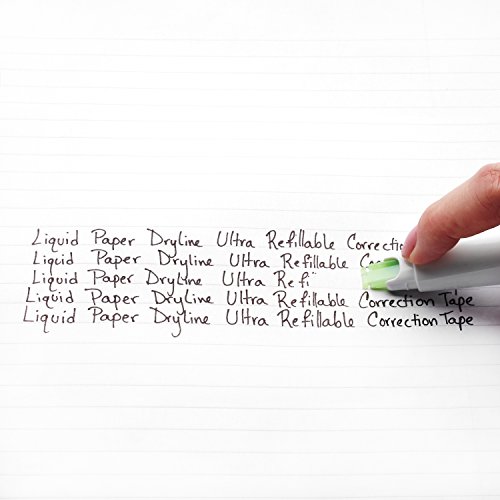 Liquid Paper Dryline Ultra Refillable Correctio
Liquid Paper Dryline Ultra Refillable Co
Liquid Paper Dryline Ultra Refi
Liquid Paper Dryline Ultra Refillable Correction Tape
Liquid Paper Dryline Ultra Refillable Correction Tape